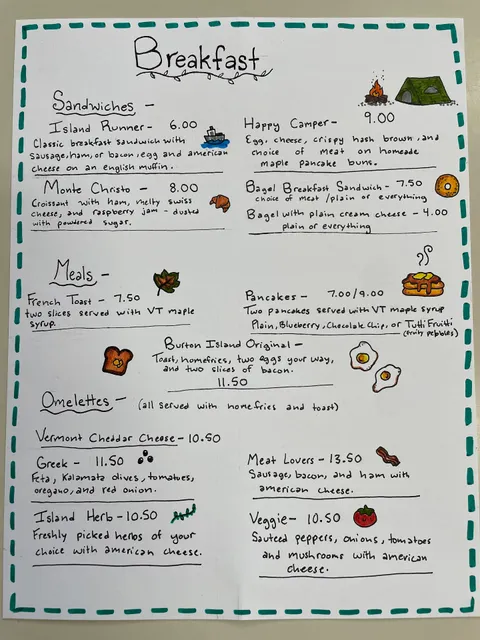 Breakfast
Sandwiches -
Island Runner - 6.00
Classic breakfast sandwich with
sausage, ham, or bacon, egg and american
cheese on an english muffin.
Happy Camper - 9.00
Egg, cheese, crispy hash brown, and
choice of meat on homeade
maple pancake buns.
Monte Christo - 8.00
Croissant with ham, melty swiss
cheese, and raspberry jam - dusted
with powdered sugar.
Bagel Breakfast Sandwich - 7.50
choice of meat / plain or everything
Bagel with plain cream cheese - 4.00
plain or everything
Meals -
French Toast - 7.50
two slices served with VT maple
syrup.
Pancakes - 7.00/9.00
Two pancakes served with VT maple syrup
Plain, Blueberry, Chocolate Chip, or Tutti Fruitti
(fruity pebbles)
Burton Island Original -
Toast, homefries, two eggs your way,
and two slices of bacon.
11.50
Omelettes - (all served with homefries and toast)
Vermont Cheddar Cheese - 10.50
Greek - 11.50
Feta, Kalamata olives, tomatoes,
oregano, and red onion.
Meat Lovers - 13.50
Sausage, bacon, and ham with
american cheese.
Island Herb - 10.50
Freshly picked herbs of your
choice with american cheese.
Veggie - 10.50
Sauteed peppers, onions, tomatoes
and mushrooms with american
cheese.